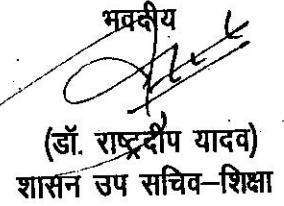 भवदीय
(डॉ. राष्ट्रदीप यादव)
शासन उप सचिव–शिक्षा